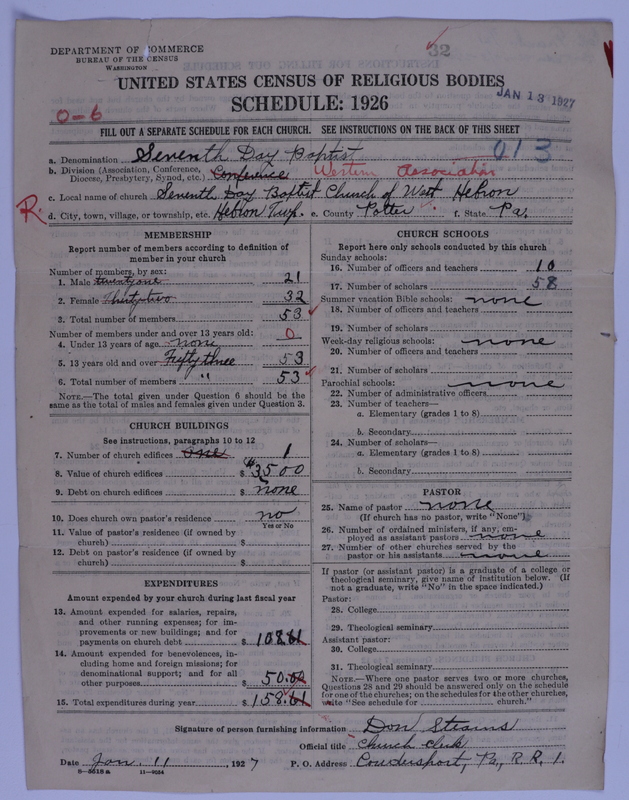 32
DEPARTMENT OF COMMERCE
BUREAU OF THE CENSUS
WASHINGTON
UNITED STATES CENSUS OF RELIGIOUS BODIES
SCHEDULE: 1926
JAN 13 1927
0-6
FILL OUT A SEPARATE SCHEDULE FOR EACH CHURCH. SEE INSTRUCTIONS ON THE BACK OF THIS SHEET
013
a. Denomination Seventh Day Baptist
b. Division (Association, Conference, Diocese, Presbytery, Synod, etc.) Conference Western Association
c. Local name of church Seventh Day Baptist Church of West Hebron
R. d. City, town, village, or township, etc. Hebron Twp. e. County Potter f. State Pa.
MEMBERSHIP
Report number of members according to definition of member in your church
Number of members, by sex:
1. Male twenty one 21
2. Female Thirty two 32
3. Total number of members 53
Number of members under and over 13 years old: 0
4. Under 13 years of age none
5. 13 years old and over Fifty three 53
6. Total number of members " 53
NOTE.—The total given under Question 6 should be the same as the total of males and females given under Question 3.
CHURCH BUILDINGS
See instructions, paragraphs 10 to 12
7. Number of church edifices one 1
8. Value of church edifices $ #3500
9. Debt on church edifices $ none
10. Does church own pastor's residence no
Yes or No
11. Value of pastor's residence (if owned by church) $
12. Debt on pastor's residence (if owned by church) $
EXPENDITURES
Amount expended by your church during last fiscal year
13. Amount expended for salaries, repairs, and other running expenses; for improvements or new buildings; and for payments on church debt $ 108.61
14. Amount expended for benevolences, including home and foreign missions; for denominational support; and for all other purposes $ 50.00
15. Total expenditures during year $ 158.61
CHURCH SCHOOLS
Report here only schools conducted by this church
Sunday schools:
16. Number of officers and teachers 10
17. Number of scholars 58
Summer vacation Bible schools: none
18. Number of officers and teachers
19. Number of scholars
Week-day religious schools: none
20. Number of officers and teachers
21. Number of scholars
Parochial schools: none
22. Number of administrative officers
23. Number of teachers—
a. Elementary (grades 1 to 8)
b. Secondary
24. Number of scholars—
a. Elementary (grades 1 to 8)
b. Secondary
PASTOR
25. Name of pastor none
(If church has no pastor, write "None")
26. Number of ordained ministers, if any, employed as assistant pastors none
27. Number of other churches served by the pastor or his assistants none
If pastor (or assistant pastor) is a graduate of a college or theological seminary, give name of institution below. (If not a graduate, write "No" in the space indicated.)
Pastor:
28. College
29. Theological seminary
Assistant pastor:
30. College
31. Theological seminary
NOTE.—Where one pastor serves two or more churches, Questions 28 and 29 should be answered only on the schedule for one of the churches; on the schedules for the other churches, write "See schedule for church."
Signature of person furnishing information Don Stearns
Official title Church Clerk
Date Jan. 11, 1927 P. O. Address Coudersport, Pa., R. R. 1.
8-5518a 11-9054